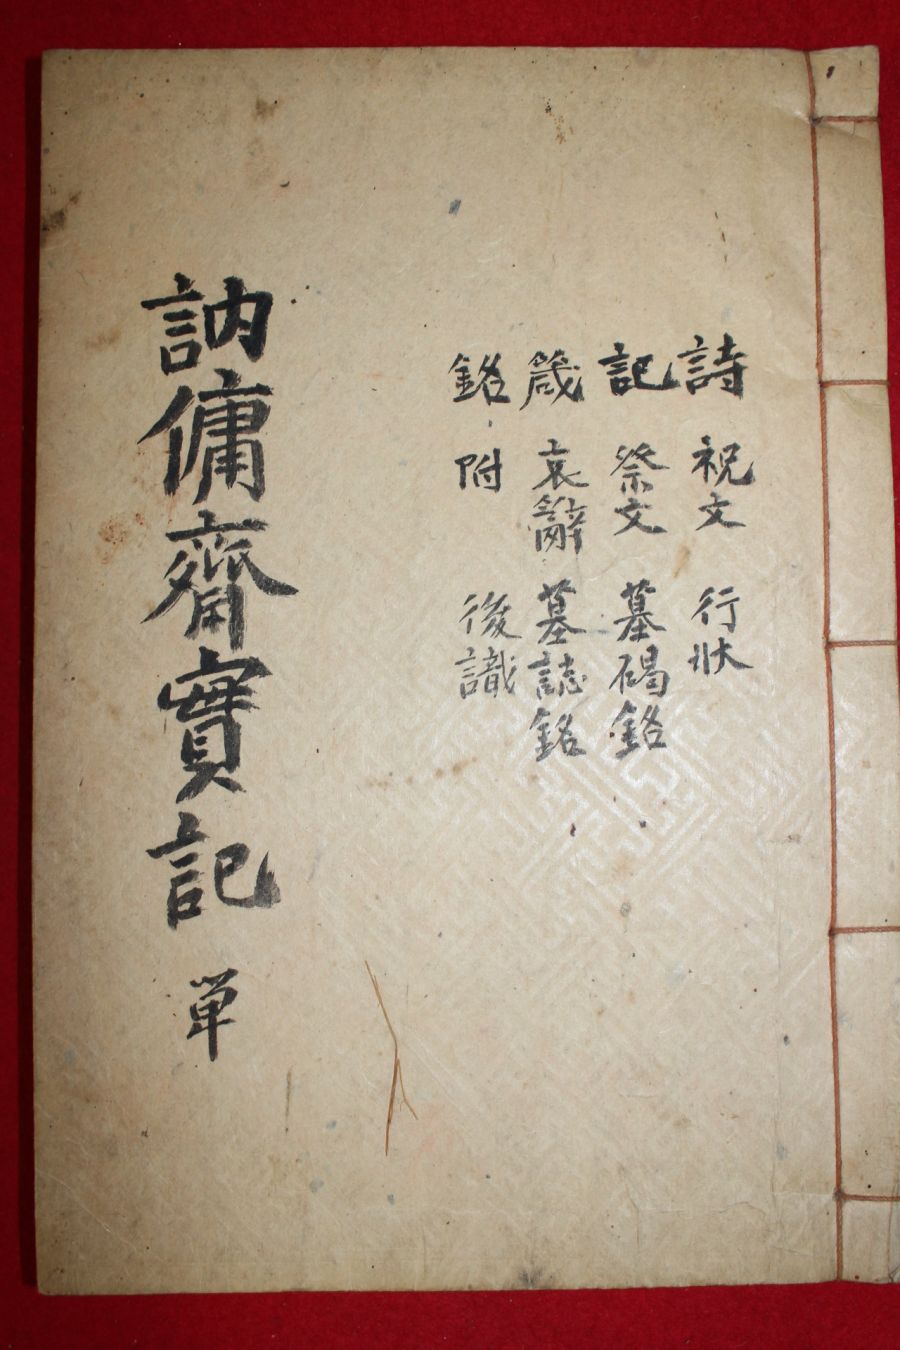 詩 祝文 行狀
記 祭文 墓碣銘
箴 哀辭 墓誌銘
銘 附 後識
訥傭齋實記 単